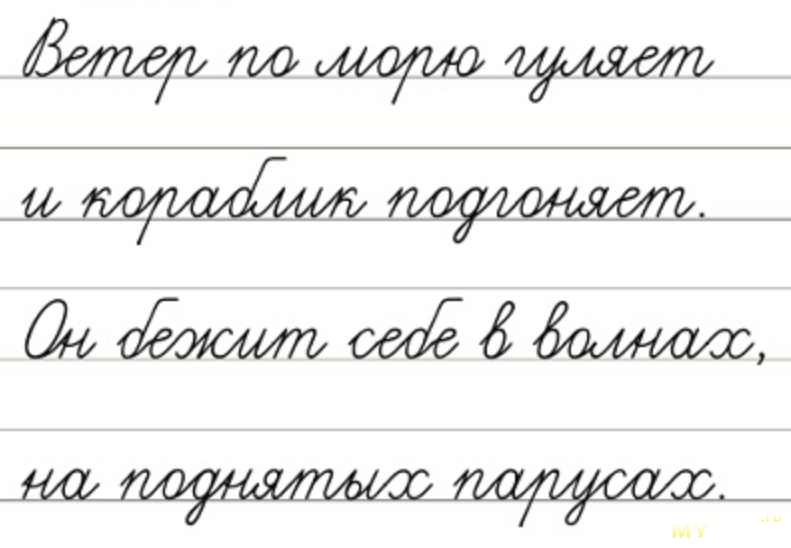 Ветер по морю гуляет
и кораблик подгоняет.
Он бежит себе в волнах,
на поднятых парусах.